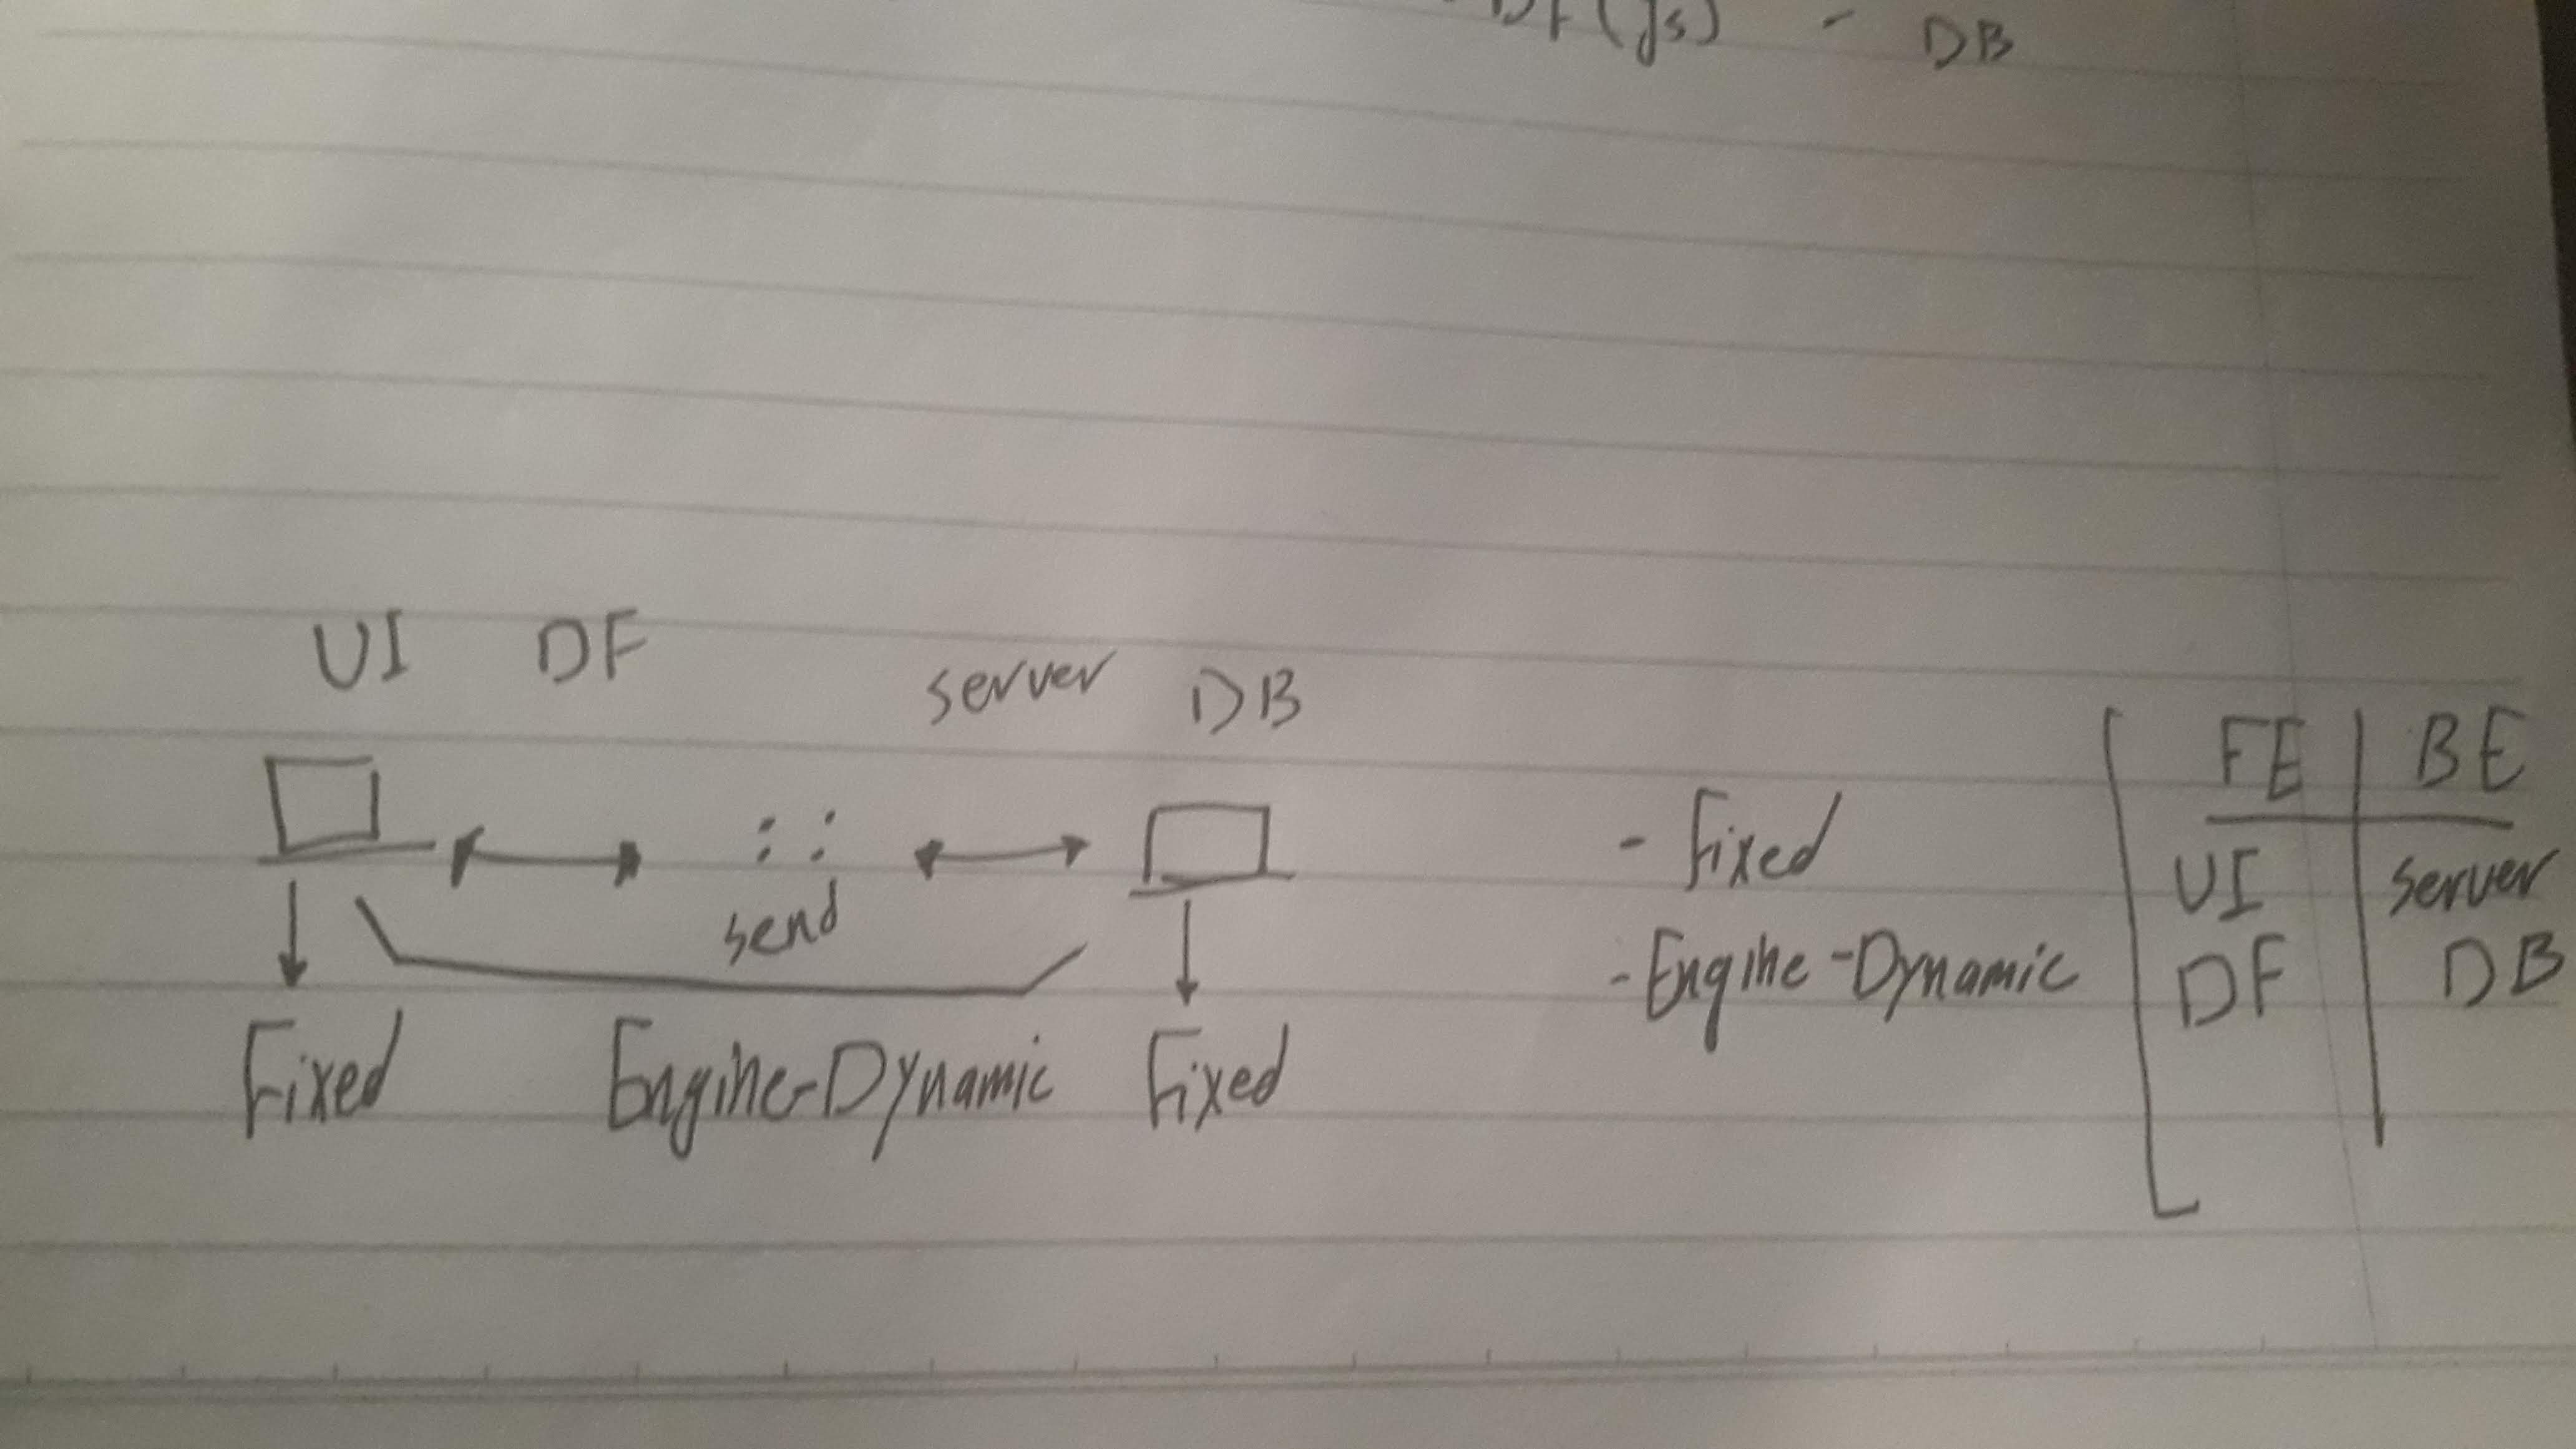 DF (js) - DB
UI DF server DB
send
Fixed Engine-Dynamic Fixed
- Fixed
- Engine-Dynamic
FE | BE
UI server
DF DB